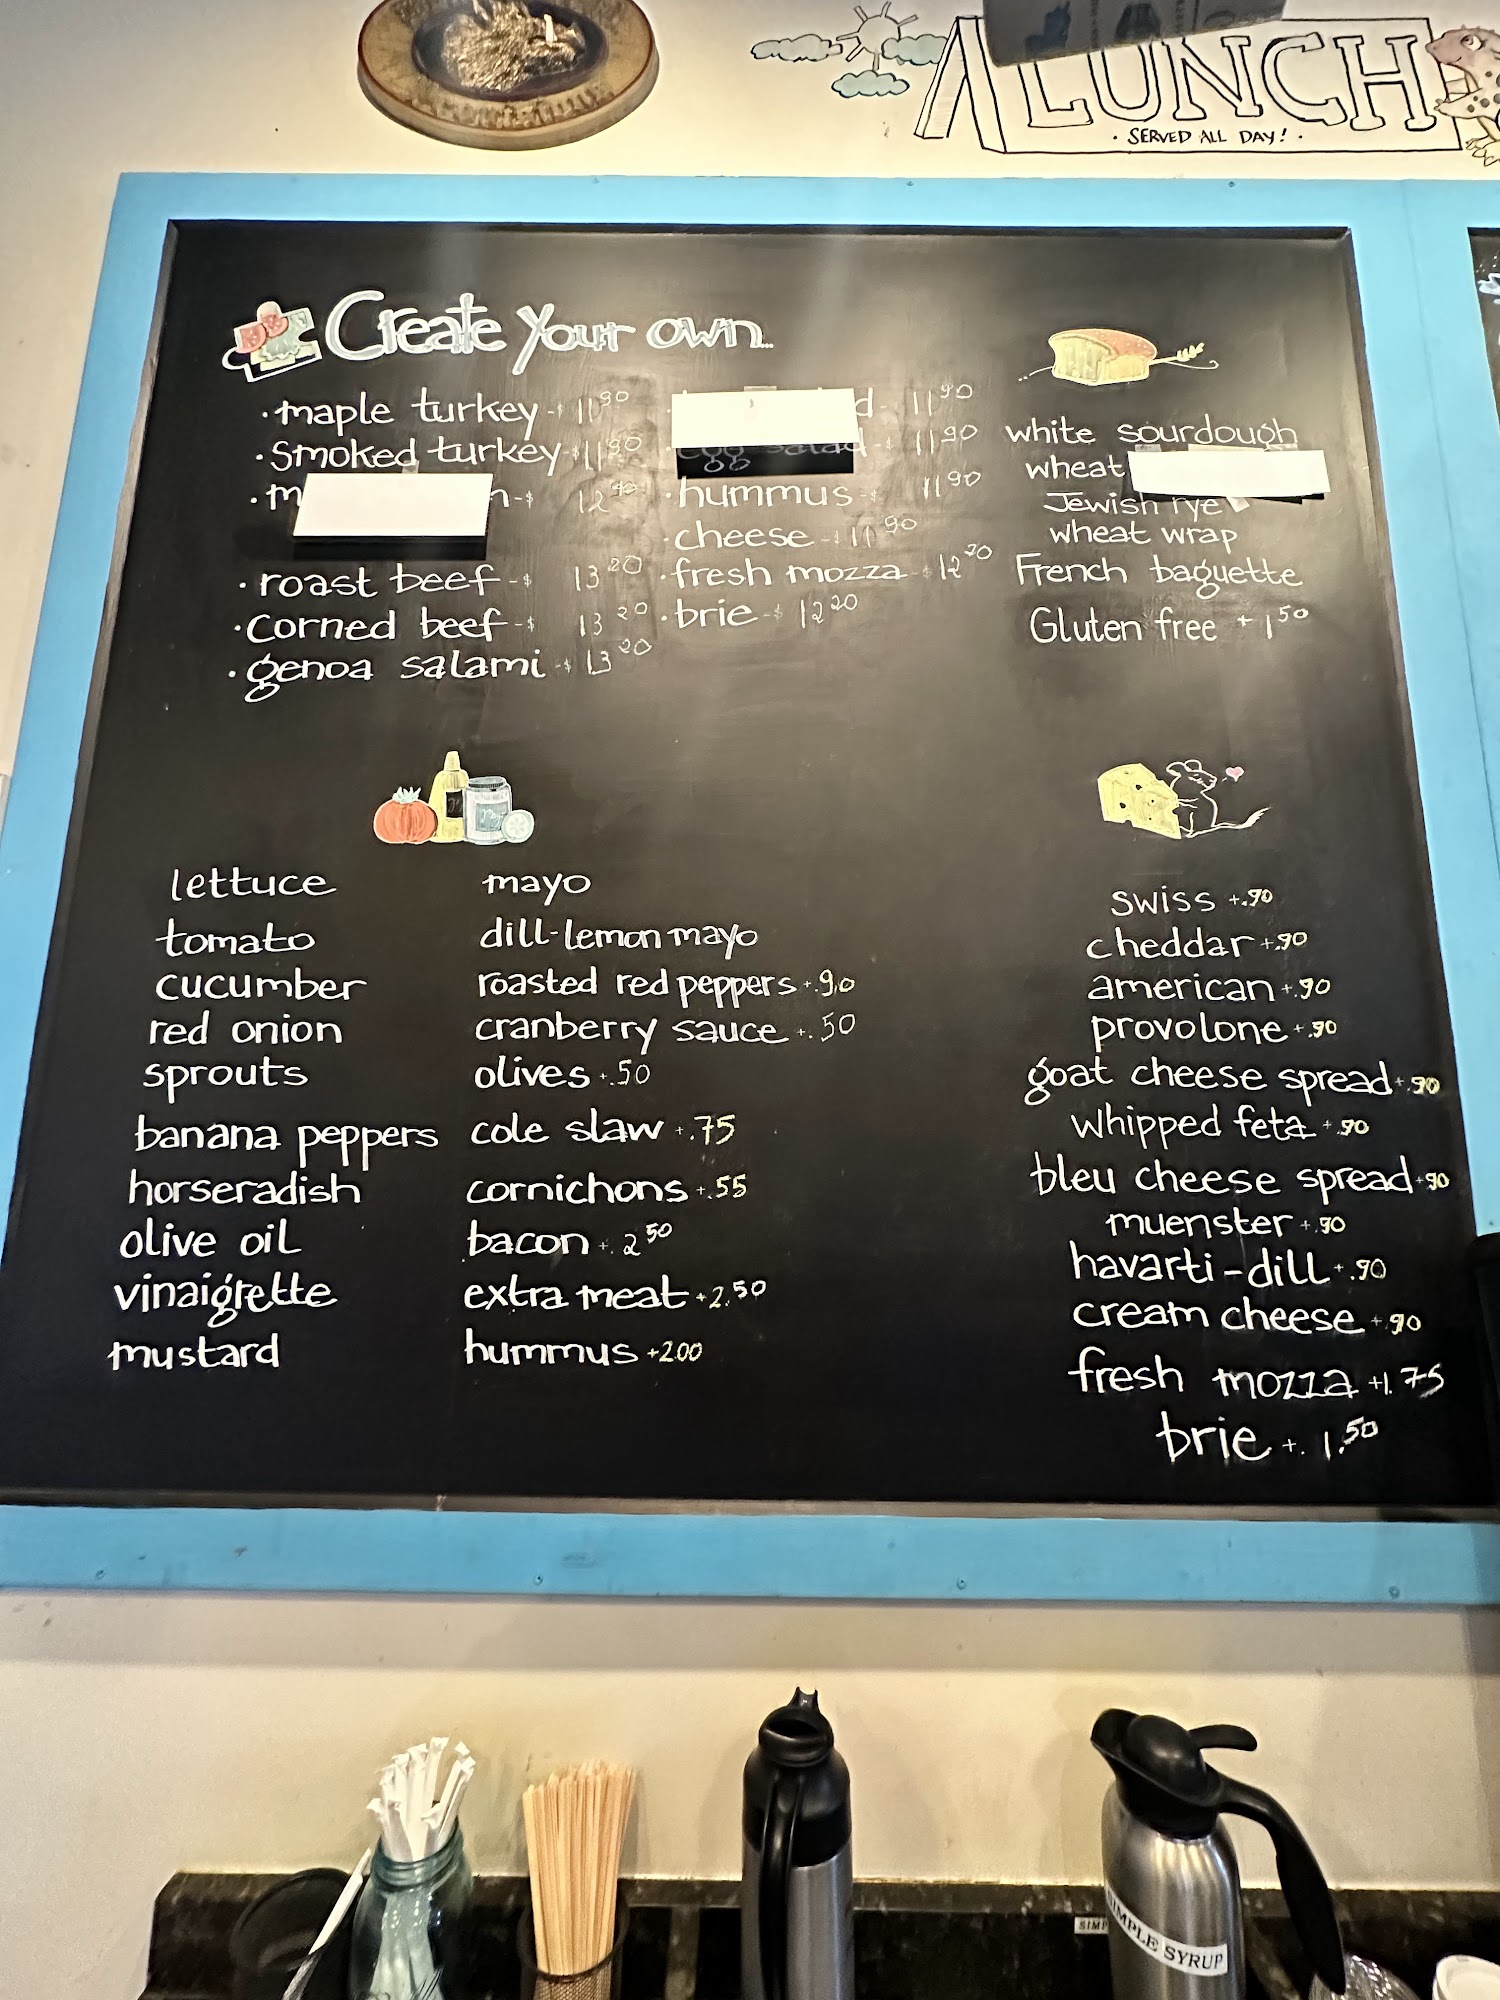 LUNCH
· SERVED ALL DAY! ·
Create your own...
· maple turkey - $ 11.90
· smoked turkey $ 11.90
- $ 12.90
· roast beef - $ 13.20
· corned beef - $ 13.20
· genoa salami - $ 13.20
- 11.90
· egg salad - $ 11.90
· hummus - $ 11.90
· cheese - $ 11.90
· fresh mozza - $ 12.20
· brie - $ 12.20
white sourdough
wheat
Jewish rye
wheat wrap
French baguette
Gluten free + 1.50
lettuce
tomato
cucumber
red onion
sprouts
banana peppers
horseradish
olive oil
vinaigrette
mustard
mayo
dill-lemon mayo
roasted red peppers +.90
cranberry sauce +.50
olives +.50
cole slaw +.75
cornichons +.55
bacon +.2.50
extra meat +2.50
hummus +2.00
swiss +.90
cheddar +.90
american +.90
provolone +.90
goat cheese spread +.90
whipped feta +.90
bleu cheese spread +.90
muenster +.90
havarti-dill +.90
cream cheese +.90
fresh mozza +1.75
brie +. 1.50
SIMPLE SYRUP